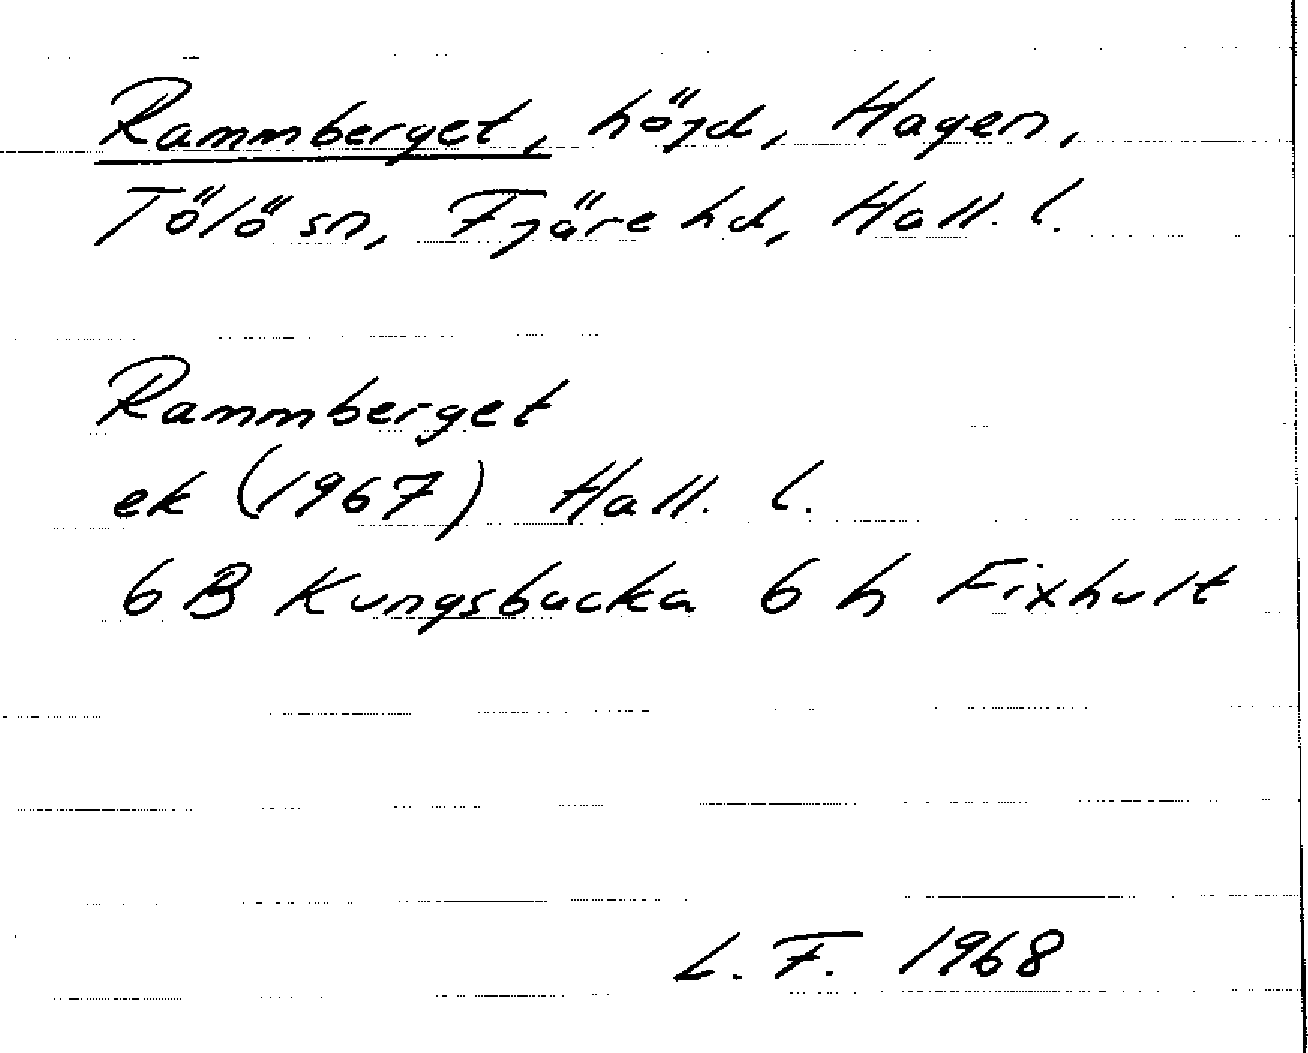 Rammberget, höjd, Hagen,
Tölö sn, Fjäre hd, Hall. l.
Rammberget
ek (1967) Hall. l.
6 B Kungsbacka 6 h Fixhult
L. F. 1968